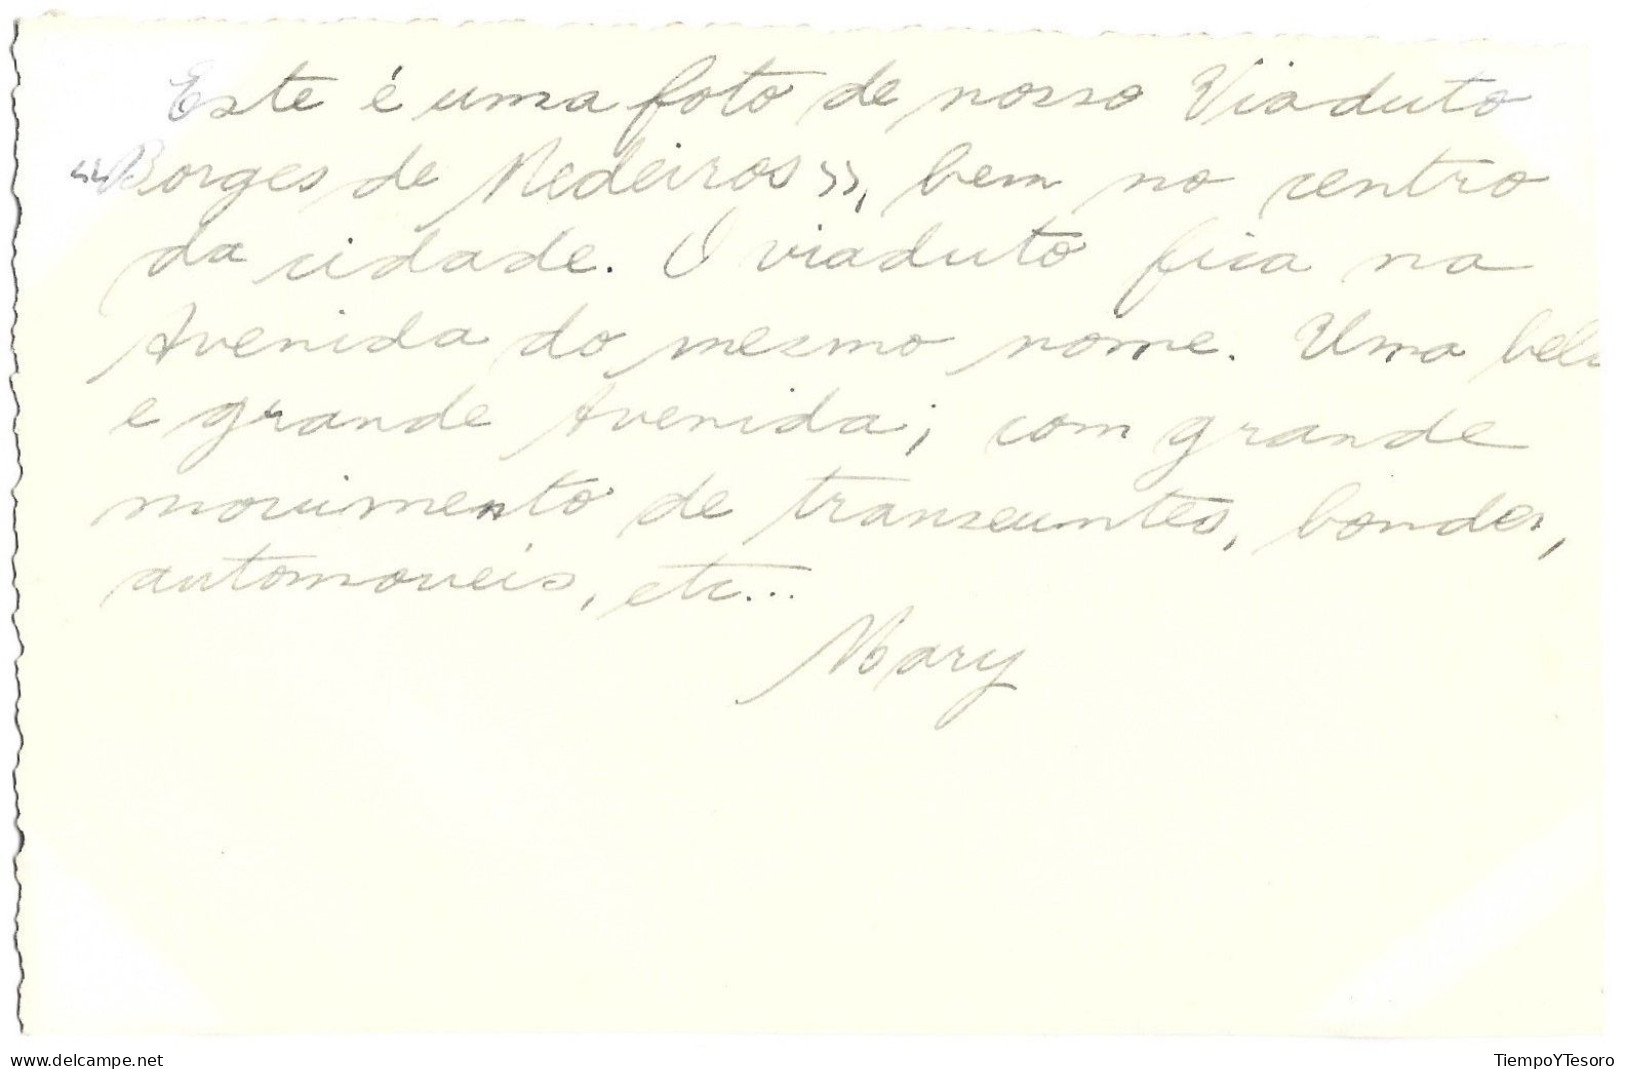 Este é uma foto de nosso Viaduto
"Borges de Medeiros», bem no centro
da cidade. O viaduto fica na
Avenida do mesmo nome. Uma bela
e grande Avenida, com grande
movimento de transeuntes, bondes,
automoveis, etc...
Mary
delcampe.net
TiempoYTesoro